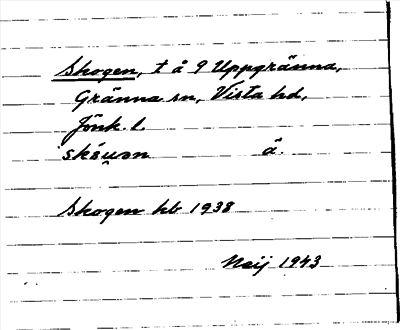 Skogen, t å 9 Uppgränna,
Gränna sn, Vista hd,
Jönk. l.
skóu̯ən ä.
Skogen hb 1938
Neij 1943